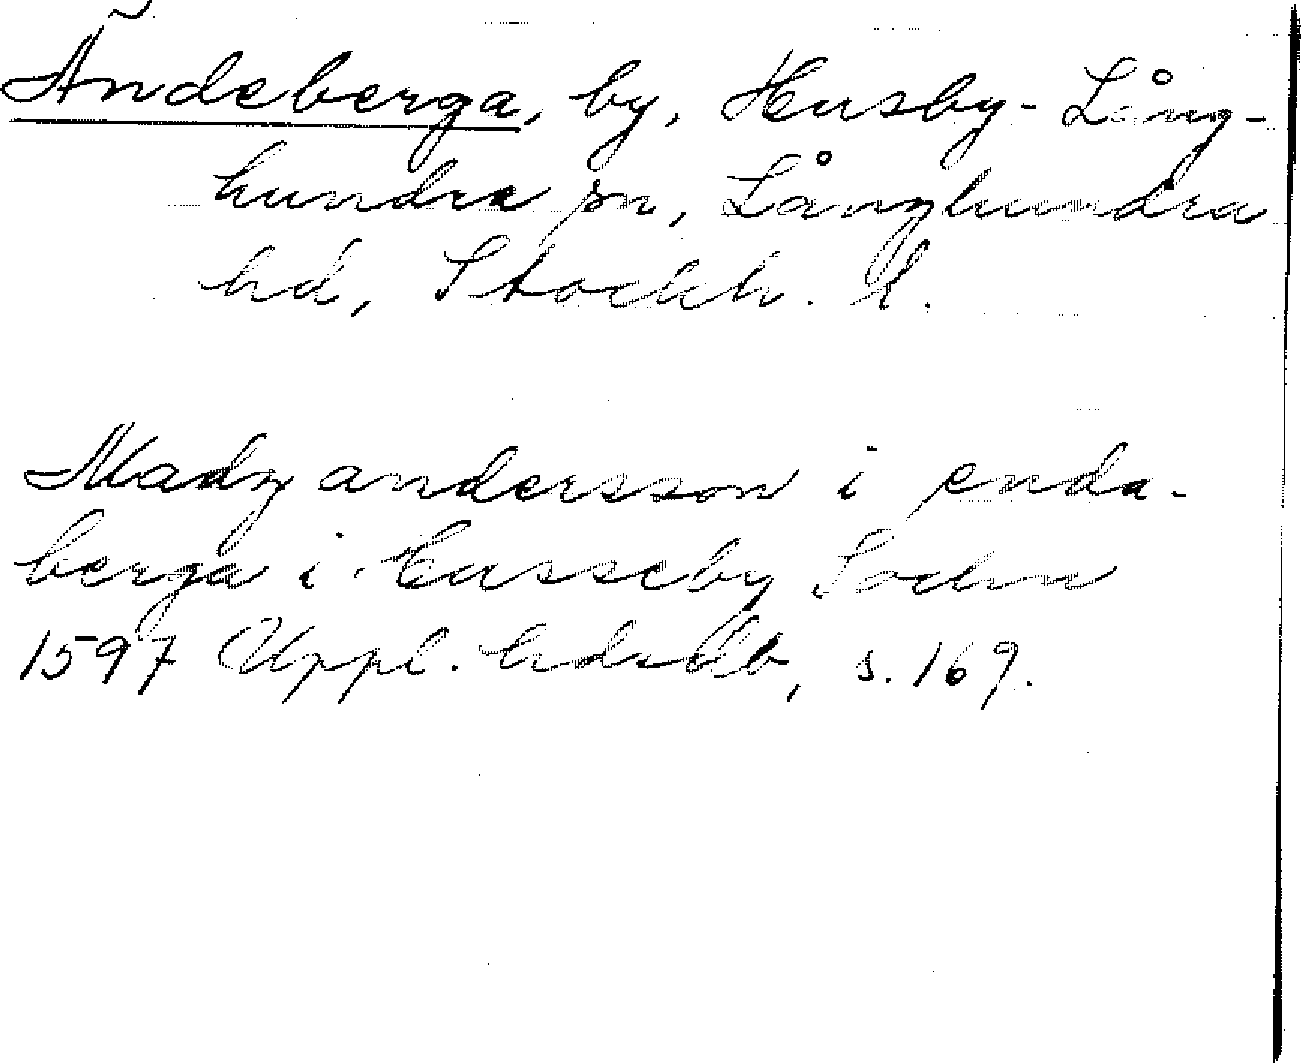 Ändeberga, by, Husby-Lång-
hundra sn, Långhundra
hd, Stockh. l.
Madz andersson i enda-
berga i husseby Sochn
1597 Uppl. hdsdb, s. 169.